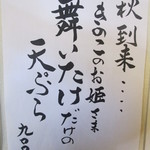 秋到来‥‥
きのこのお姫さま
舞いたけだけの
天ぷら
九〇〇